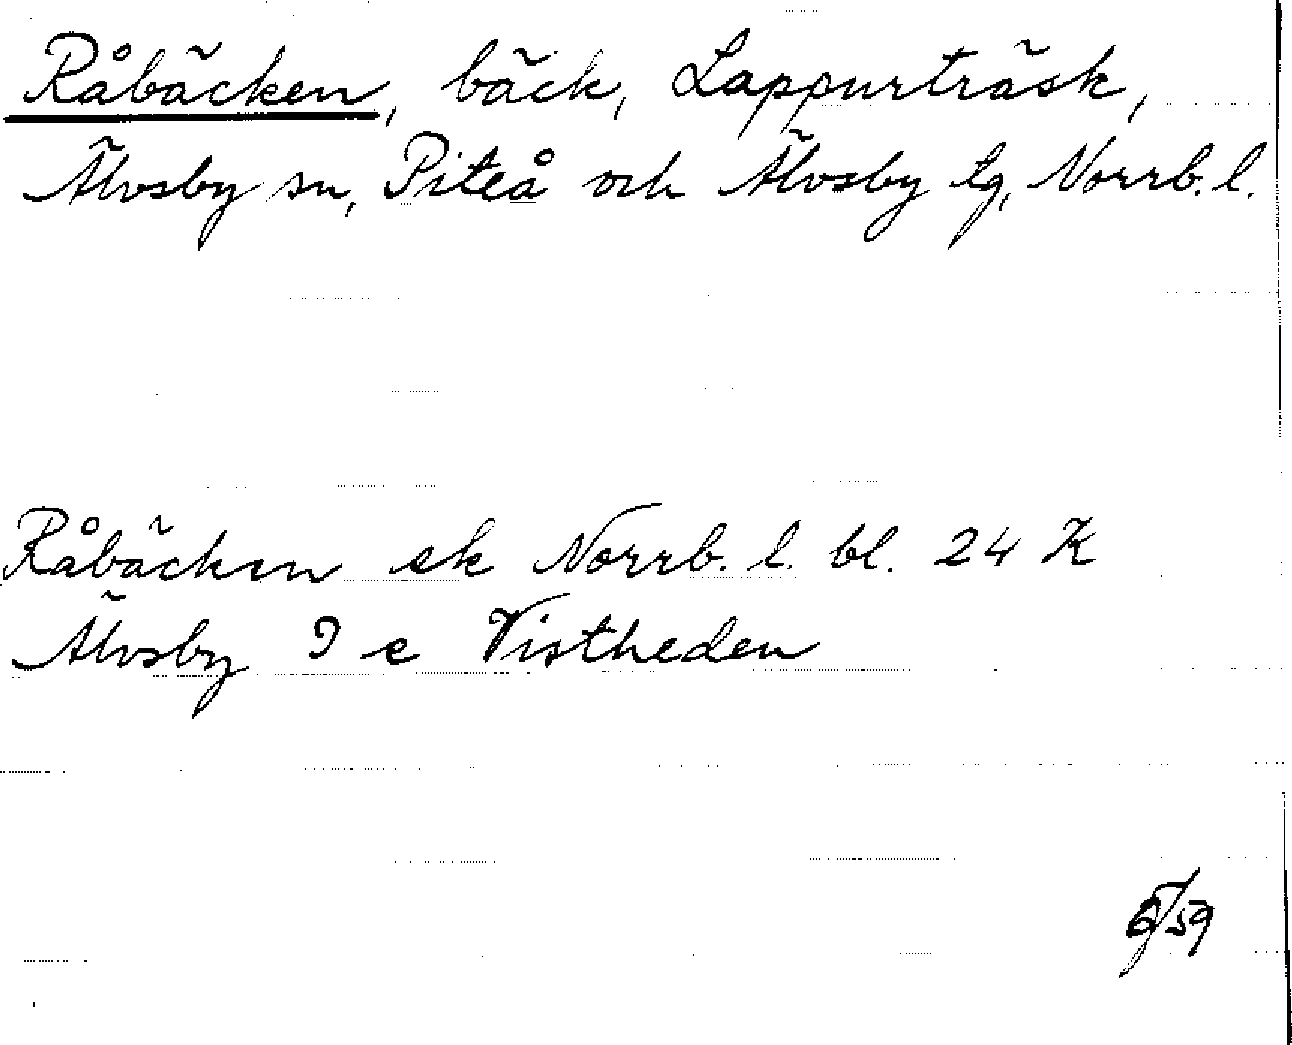 Råbäcken, bäck, Lappurträsk,
Älvsby sn, Piteå och Älvsby tg, Norrb. l.
Råbäcken ek Norrb. l. bl. 24 K
Älvsby 9 e Vistheden